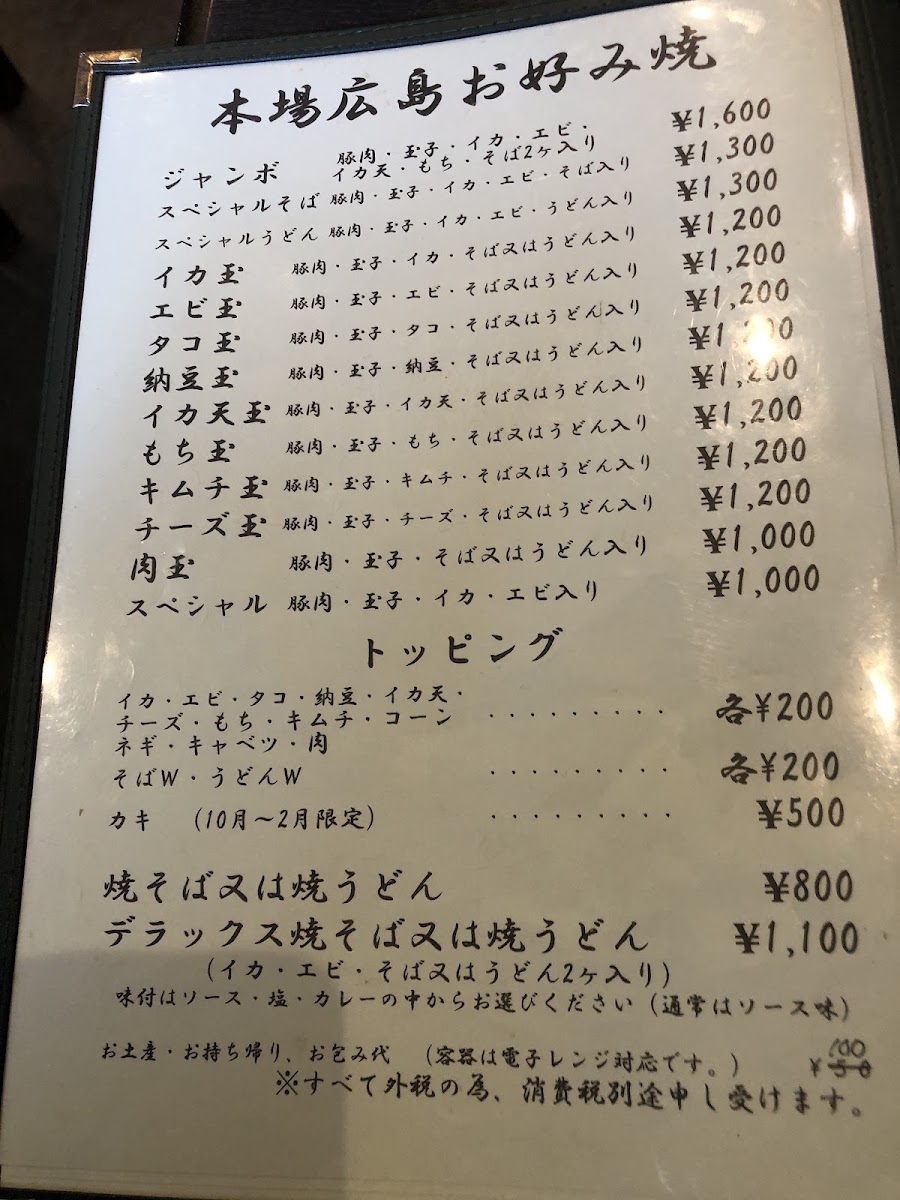 本場広島お好み焼
ジャンボ 豚肉・玉子・イカ・エビ・ ¥1,600
イカ天・もち・そば2ヶ入り
スペシャルそば 豚肉・玉子・イカ・エビ・そば入り ¥1,300
スペシャルうどん 豚肉・玉子・イカ・エビ・うどん入り ¥1,300
イカ玉 豚肉・玉子・イカ・そば又はうどん入り ¥1,200
エビ玉 豚肉・玉子・エビ・そば又はうどん入り ¥1,200
タコ玉 豚肉・玉子・タコ・そば又はうどん入り ¥1,200
納豆玉 豚肉・玉子・納豆・そば又はうどん入り
イカ天玉 豚肉・玉子・イカ天・そば又はうどん入り ¥1,200
もち玉 豚肉・玉子・もち・そば又はうどん入り ¥1,200
キムチ玉 豚肉・玉子・キムチ・そば又はうどん入り ¥1,200
チーズ玉 豚肉・玉子・チーズ・そば又はうどん入り ¥1,200
肉玉 豚肉・玉子・そば又はうどん入り ¥1,000
スペシャル 豚肉・玉子・イカ・エビ入り ¥1,000
トッピング
イカ・エビ・タコ・納豆・イカ天・
チーズ・もち・キムチ・コーン ········· 各¥200
ネギ・キャベツ・肉
そばW・うどんW ········· 各¥200
カキ (10月~2月限定) ········· ¥500
焼そば又は焼うどん ¥800
デラックス焼そば又は焼うどん ¥1,100
(イカ・エビ・そば又はうどん2ヶ入り)
味付はソース・塩・カレーの中からお選びください (通常はソース味)
お土産・お持ち帰り、お包み代 (容器は電子レンジ対応です。) ¥50 100
※すべて外税の為、消費税別途申し受けます。